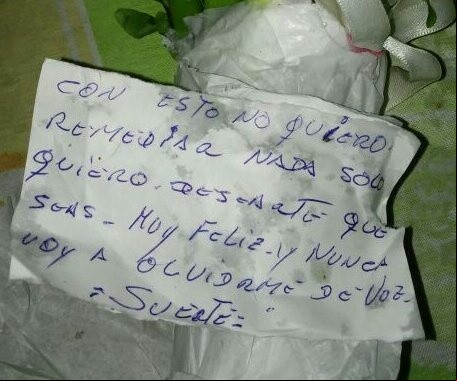 CON ESTO NO QUIERO.
REMEDIAR NADA SOLO
QUIERO. DESEARTE QUE
SEAS- MUY FELIZ-Y NUNCA
VOY A OLVIDARME DE VOZ-
=SUERTE=